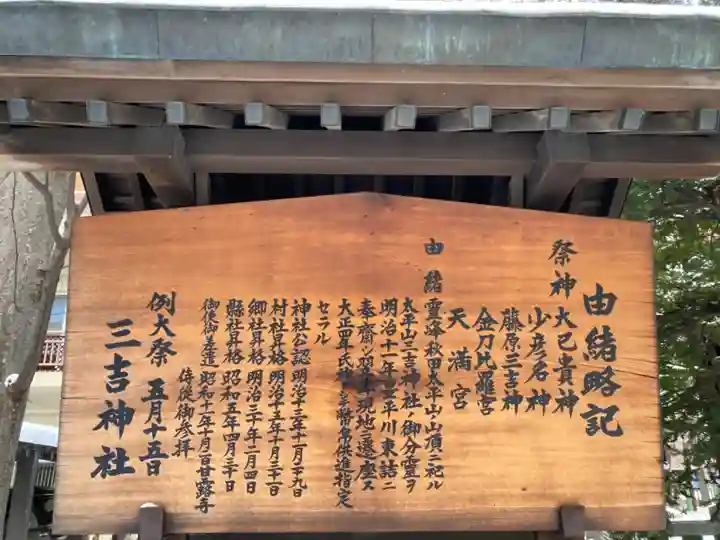 由緒略記
祭神 大己貴神
少彦名神
藤原三吉神
金刀比羅宮
天満宮
由緒 霊峰秋田太平山山頂ニ祀ル
太平山三吉神社ノ御分霊ヲ
明治十一年豊平川東詰ニ
奉齋シ
現地ニ遷座ス
大正四年氏
幣帛供進指定
セラル
神社公認 明治十三年十一月廿九日
村社昇格 明治十三年十二月三十一日
郷社昇格 明治三十年二月四日
縣社昇格 昭和五年四月三十日
御使御差遣 昭和十一年十月二日甘露寺
侍従御参拝
例大祭 五月十五日
三吉神社